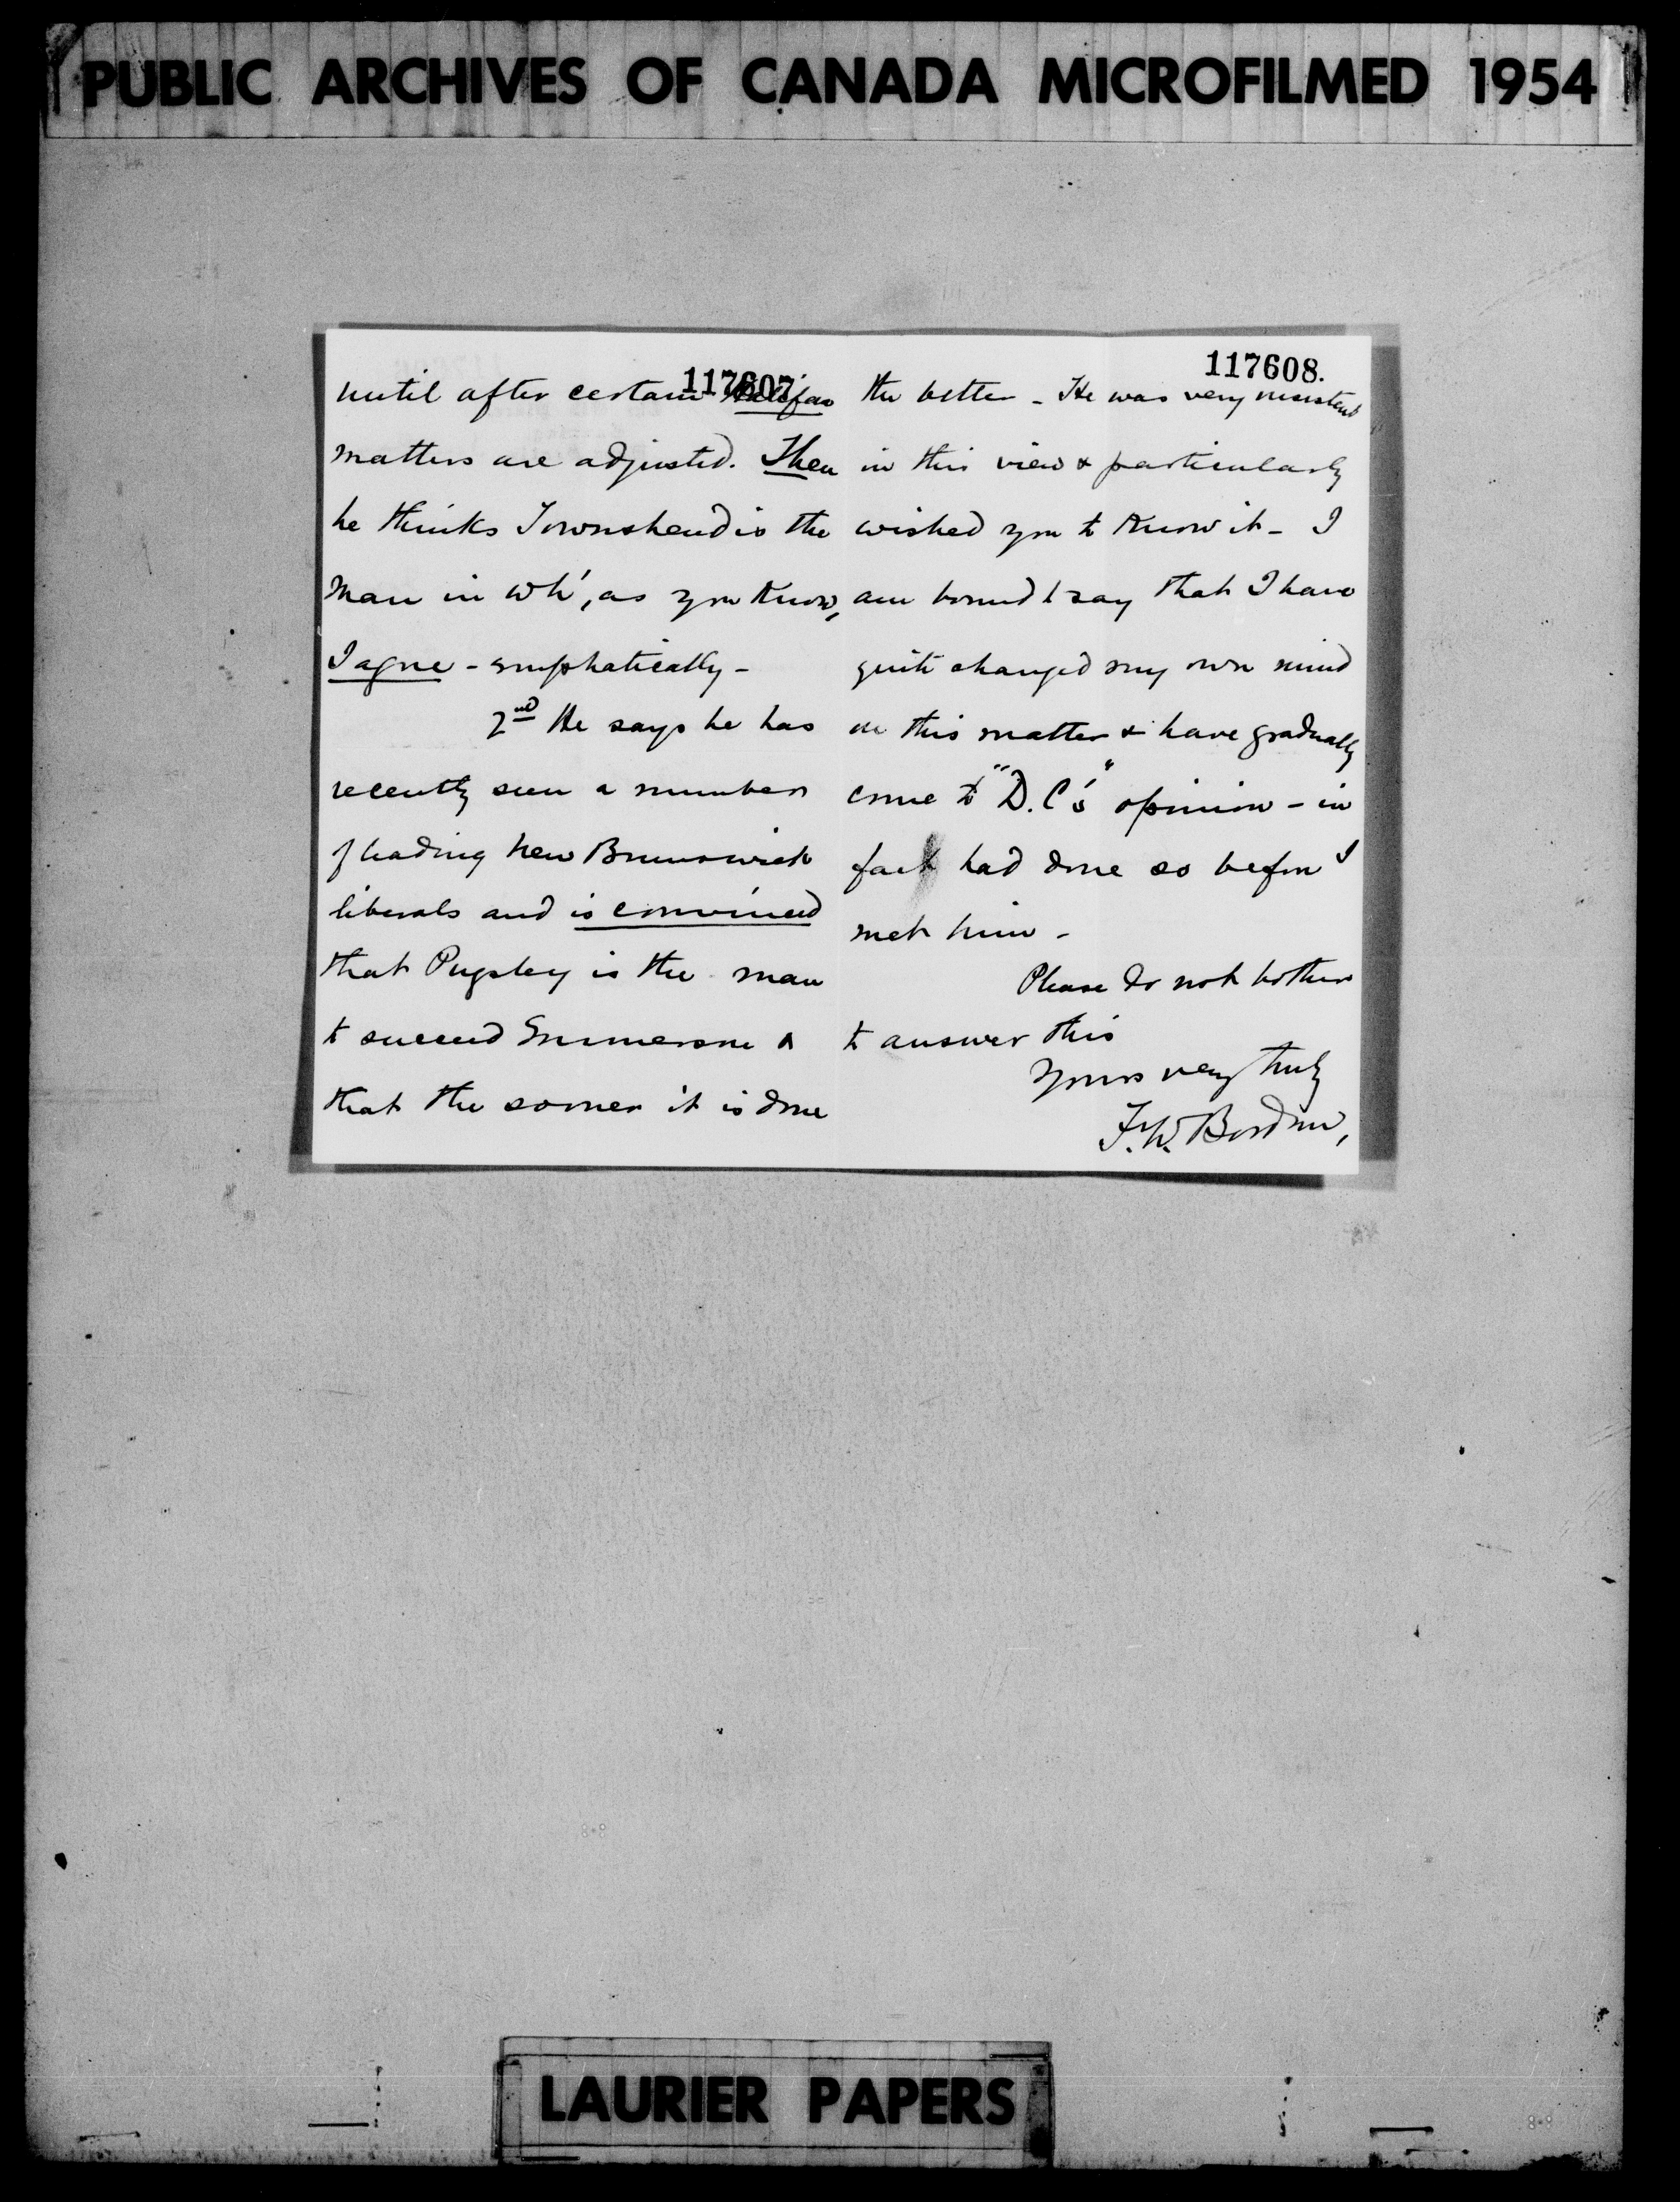 PUBLIC ARCHIVES OF CANADA MICROFILMED 1954
117607
until after certain Halifax
matters are adjusted. Then
he thinks Townshend is the
man in wh', as you know,
I agree - emphatically -
2nd He says he has
recently seen a number
of leading New Brunswick
liberals and is convinced
that Pugsley is the man
to succeed Emmerson &
that the sooner it is done
117608.
the better - He was very insistent
in this view & particularly
wished you to know it - I
am bound to say that I have
quite changed my own mind
in this matter & have gradually
come to "D.C's" opinion - in
fact had done so before I
met him -
Please do not bother
to answer this
Yours very truly
F.W. Borden,
LAURIER PAPERS